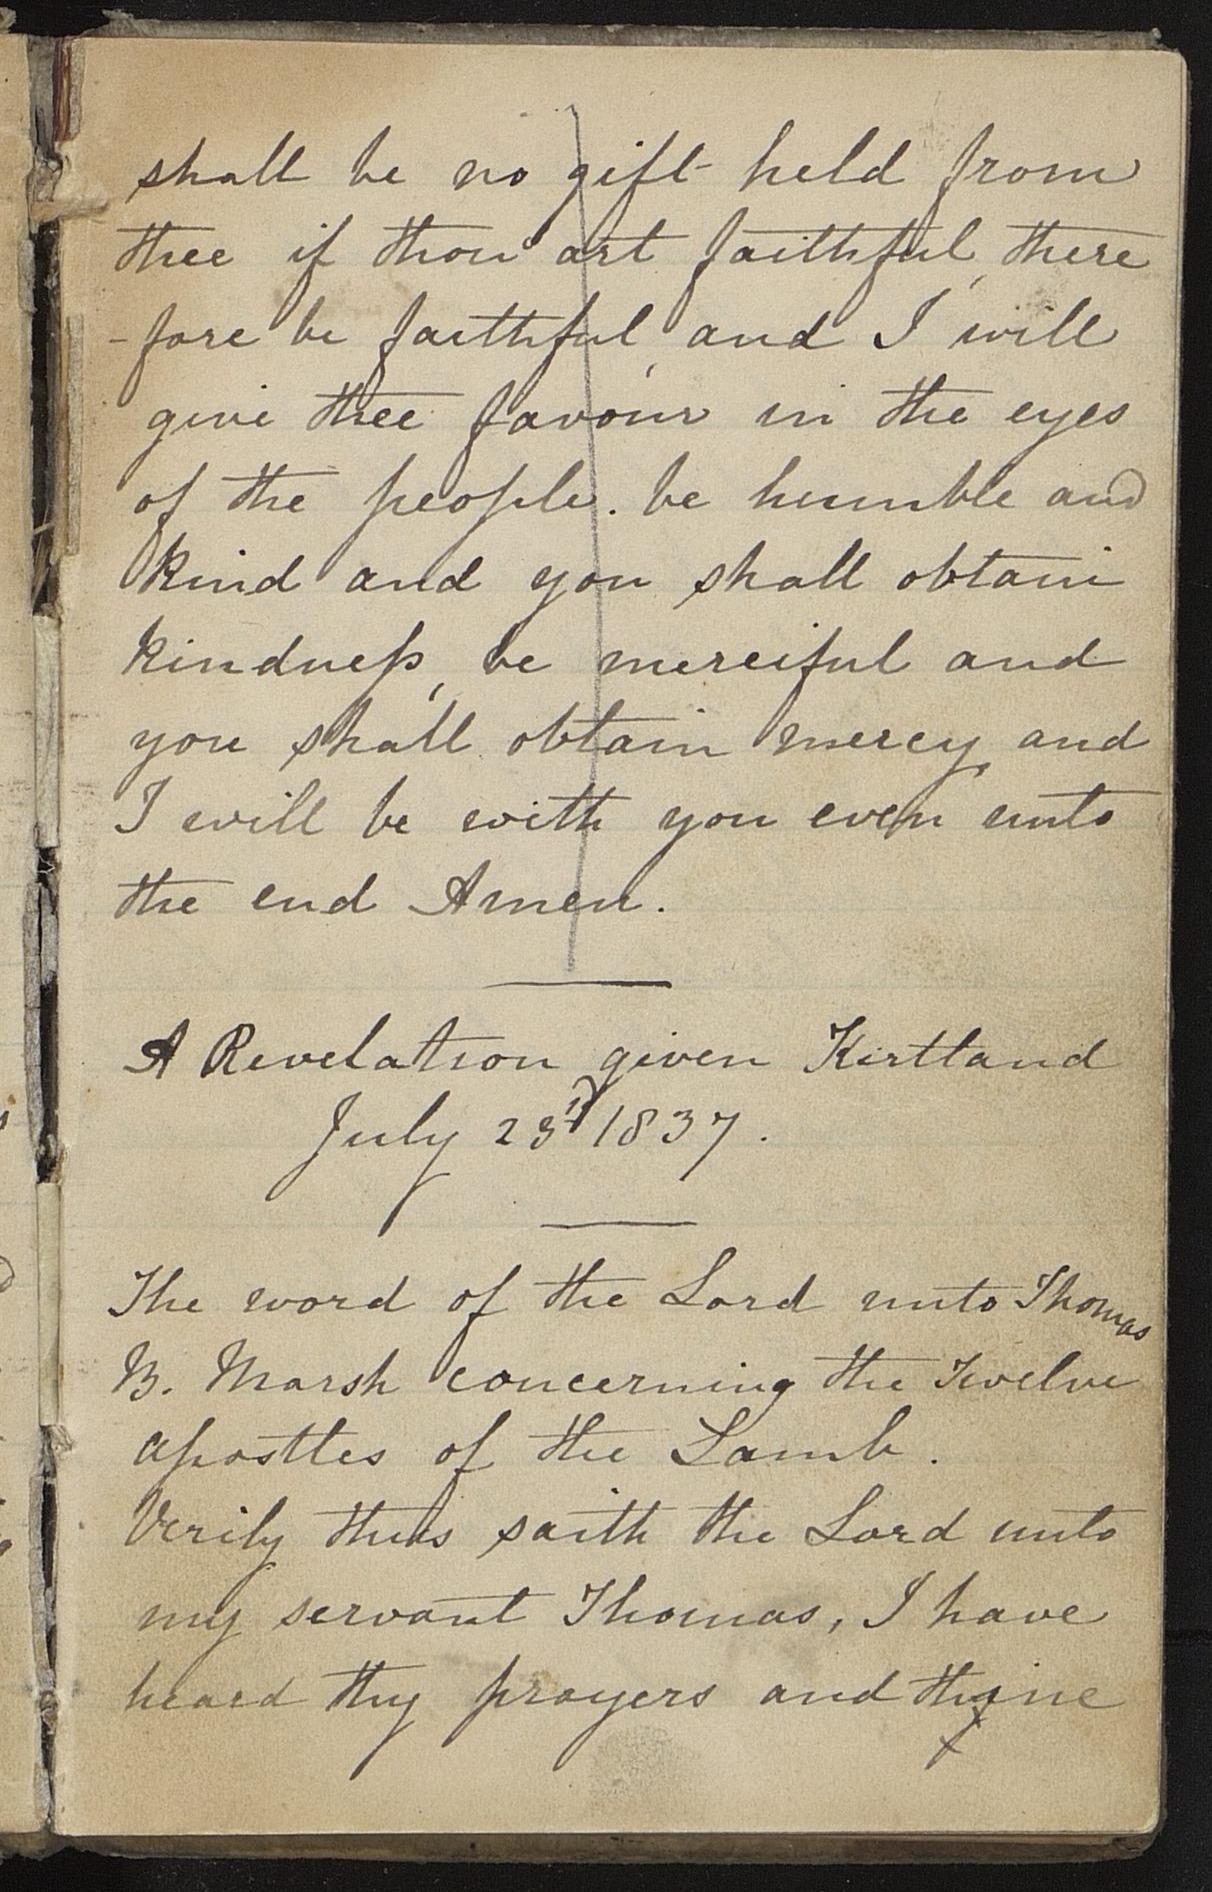 shall be no gift held from
thee if thou art faithful, there
-fore be faithful, and I will
give thee favour in the eyes
of the people. be humble and
kind and you shall obtain
kindneſs, be merciful and
you shall obtain mercy and
I will be with you even unto
the end Amen.
A Revelation given Kirtland
July 23rd 1837.
The word of the Lord unto Thomas
B. Marsh concerning the Twelve
apostles of the Lamb.
Verily thus saith the Lord unto
my servant Thomas, I have
heard thy prayers and thyine